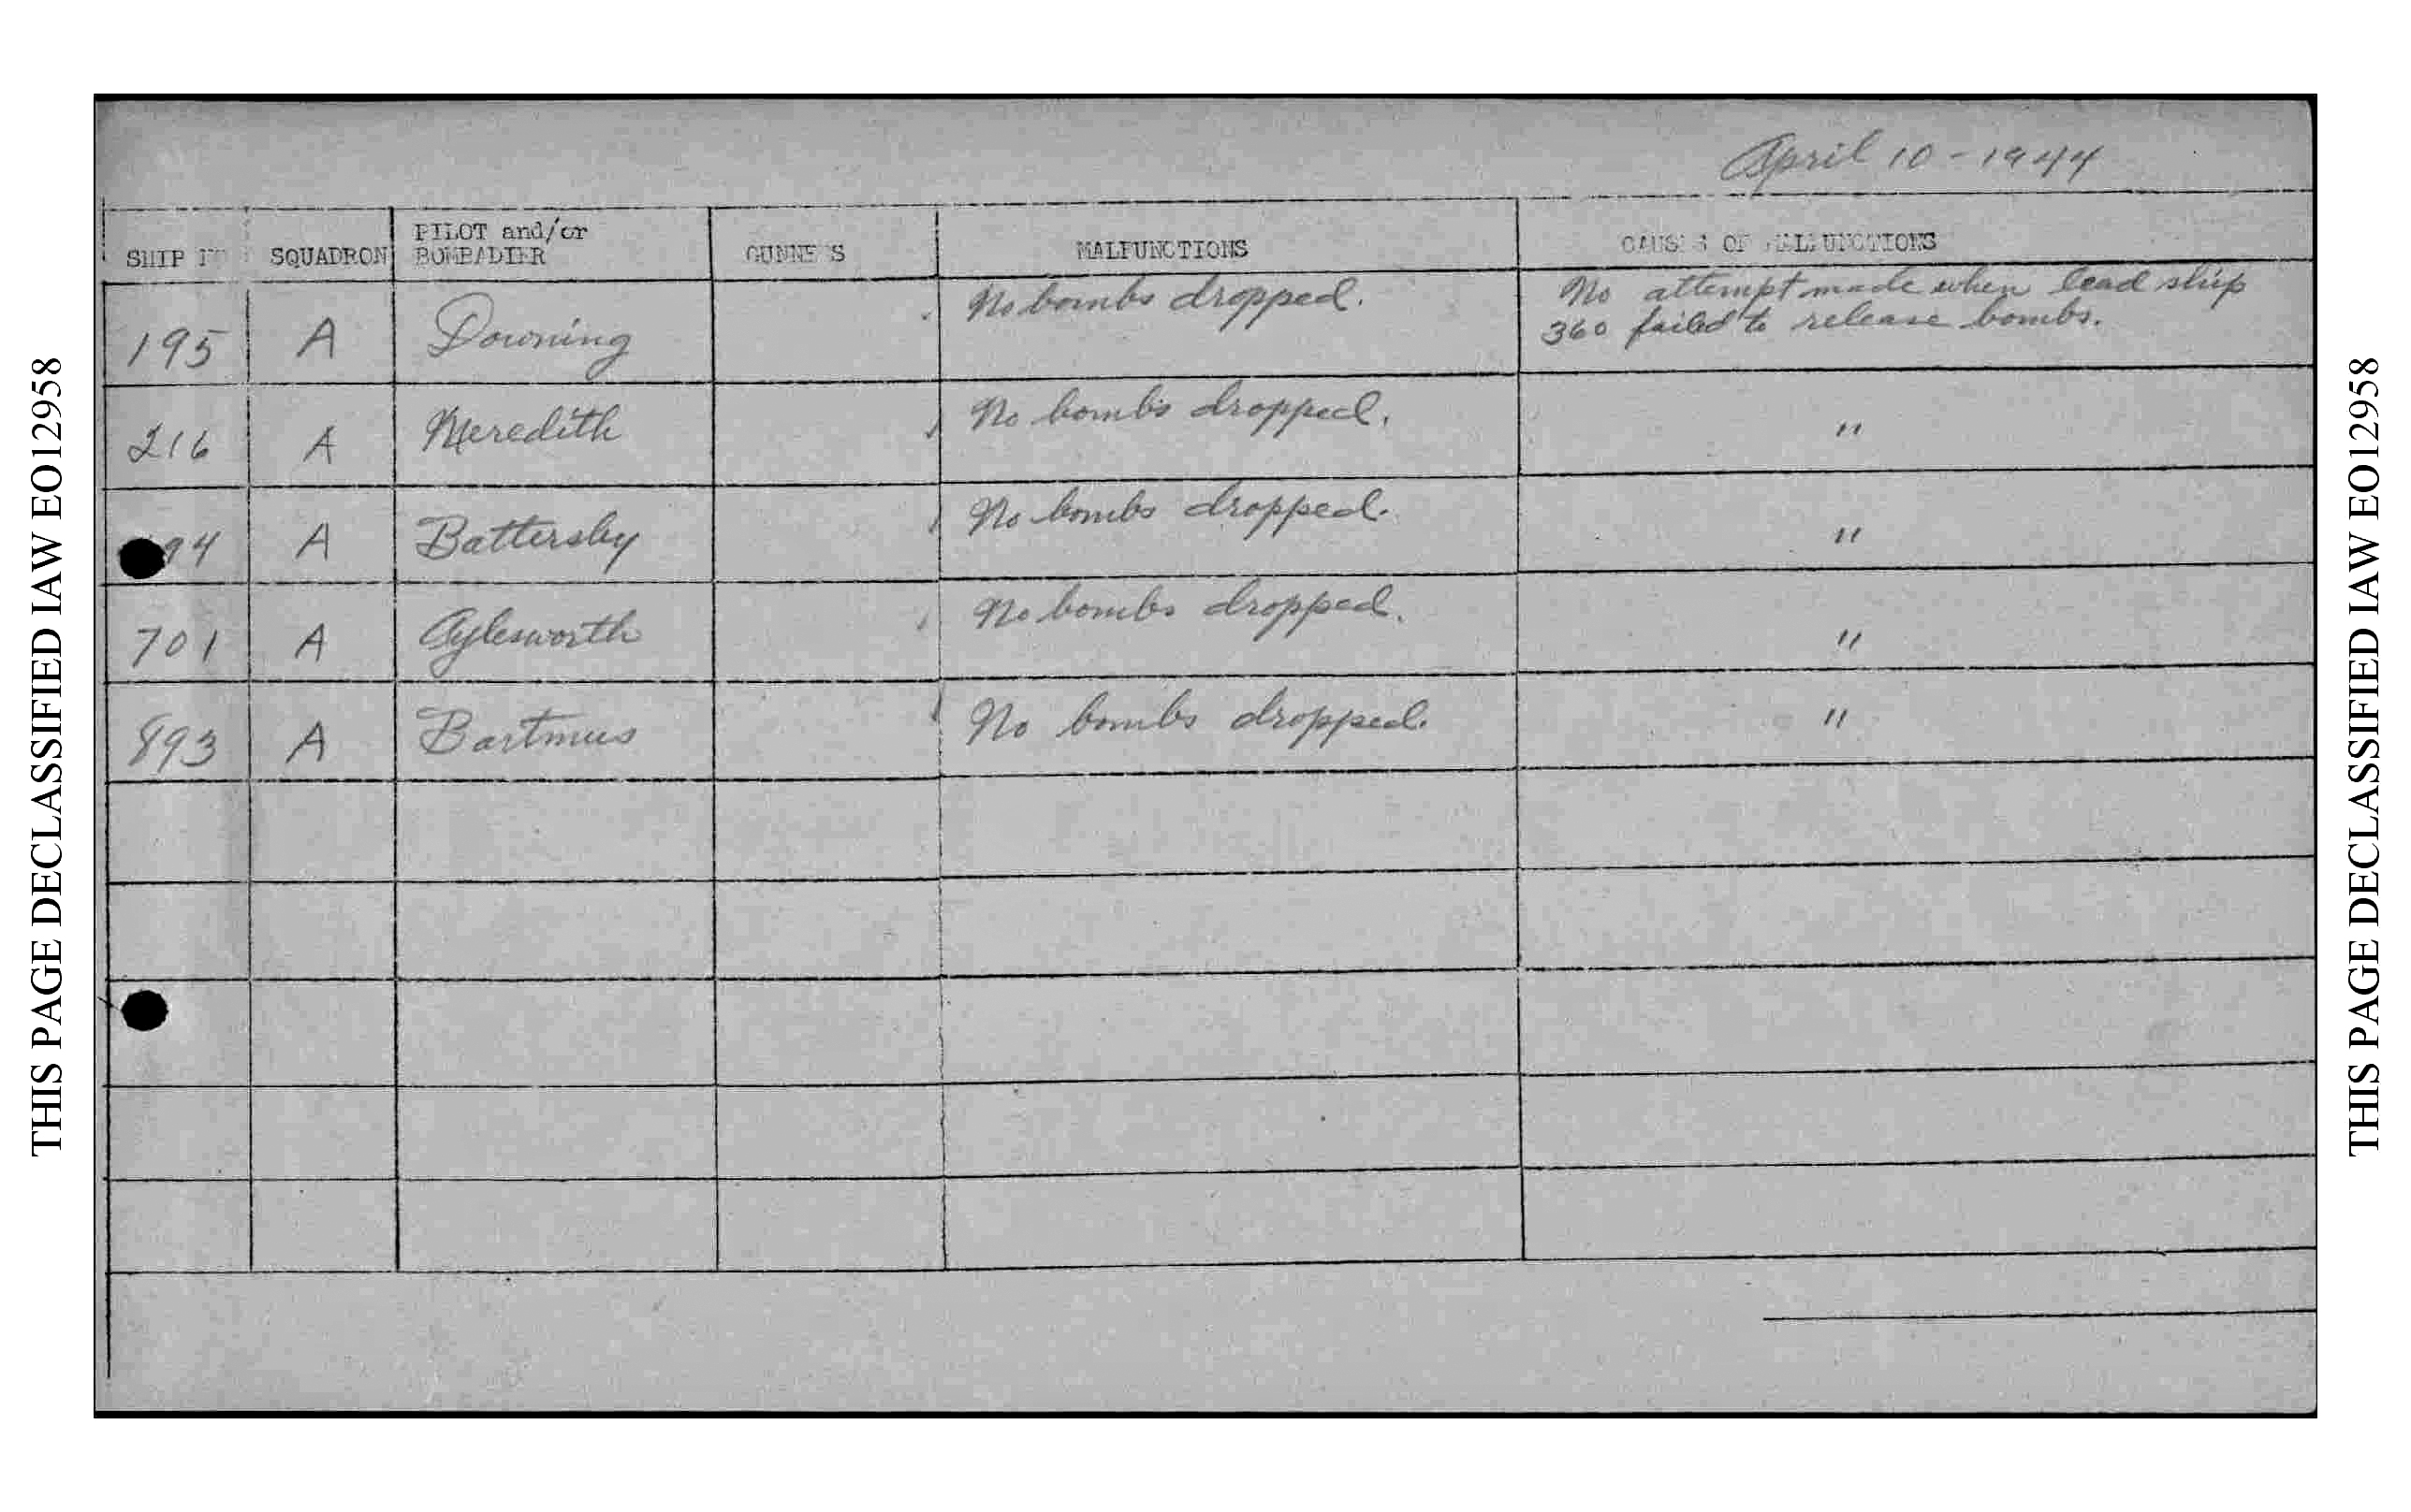 THIS PAGE DECLASSIFIED IAW EO12958
April 10 - 1944
SHIP SQUADRON PILOT and/or BOMBADIER GUNNERS MALFUNCTIONS CAUSES OF MALFUNCTIONS
195 A Downing No bombs dropped. No attempt made when lead ship
360 failed to release bombs.
216 A Meredith No bombs dropped. "
94 A Battersby No bombs dropped. "
701 A Aylesworth No bombs dropped. "
893 A Bartmus No bombs dropped. "
THIS PAGE DECLASSIFIED IAW EO12958